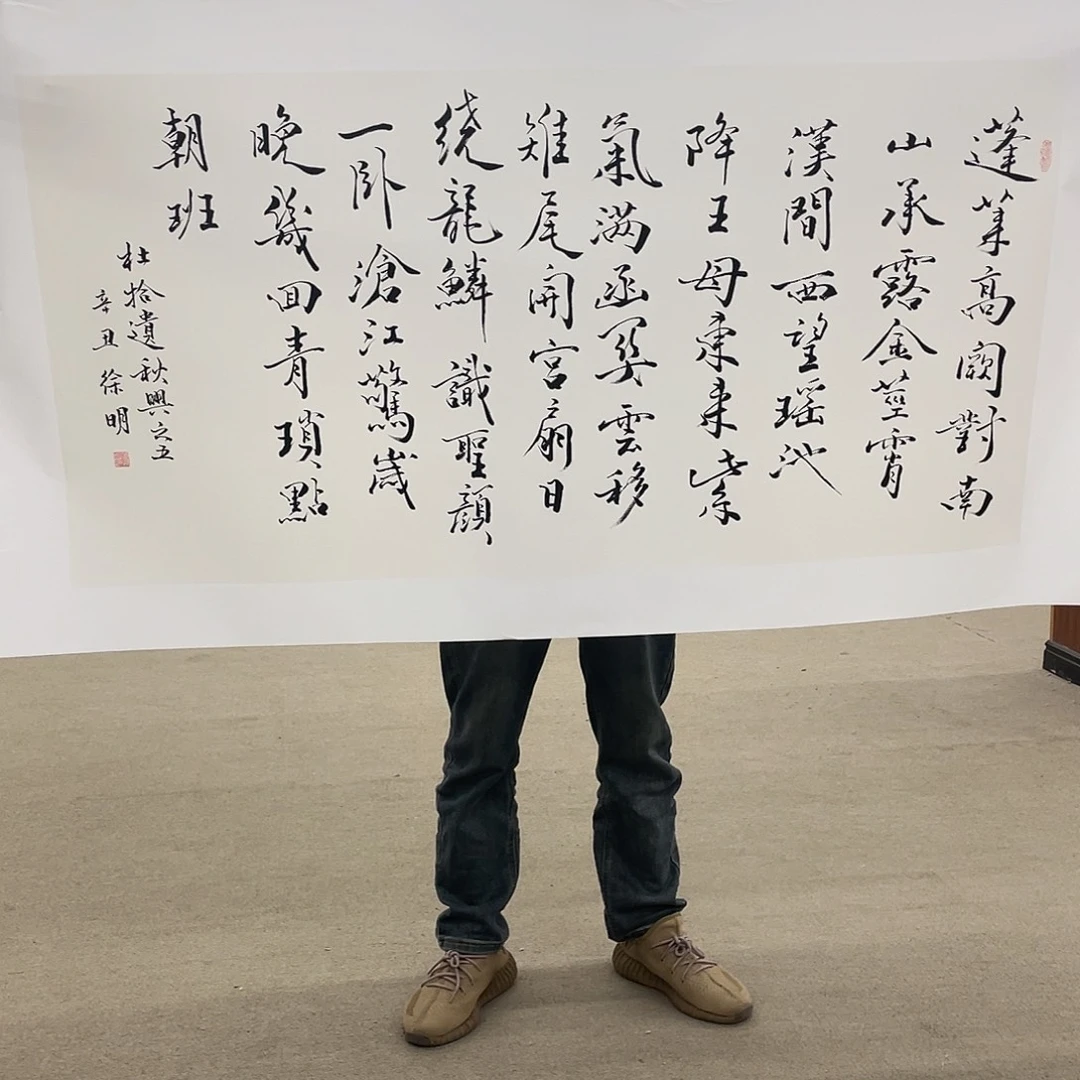 蓬莱高闕對南
山承露金莖霄
漢間西望瑶池
降王母東来紫
氣满函関雲移
雉尾開宮扇日
绕龍鱗識聖顔
一卧滄江驚歲
晚幾回青瑣點
朝班
杜拾遺秋興之五
辛丑 徐明